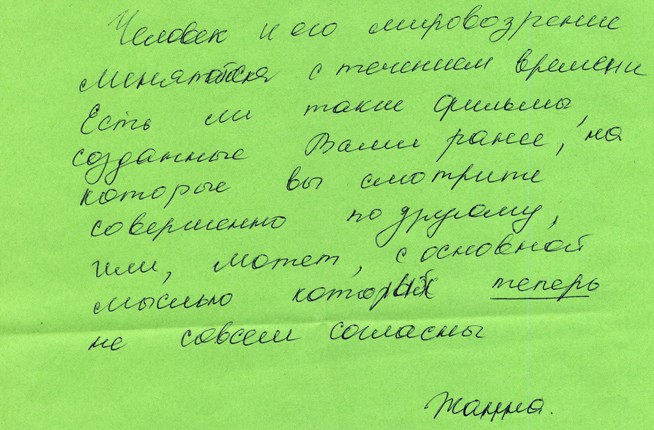 Человек и его мировозрение
меняются с течением времени
Есть ли такие фильмы,
созданные Вами ранее, на
которые вы смотрите
совершенно по другому,
или, может, с основной
мыслью которых теперь
не совсем согласны
Жанна.